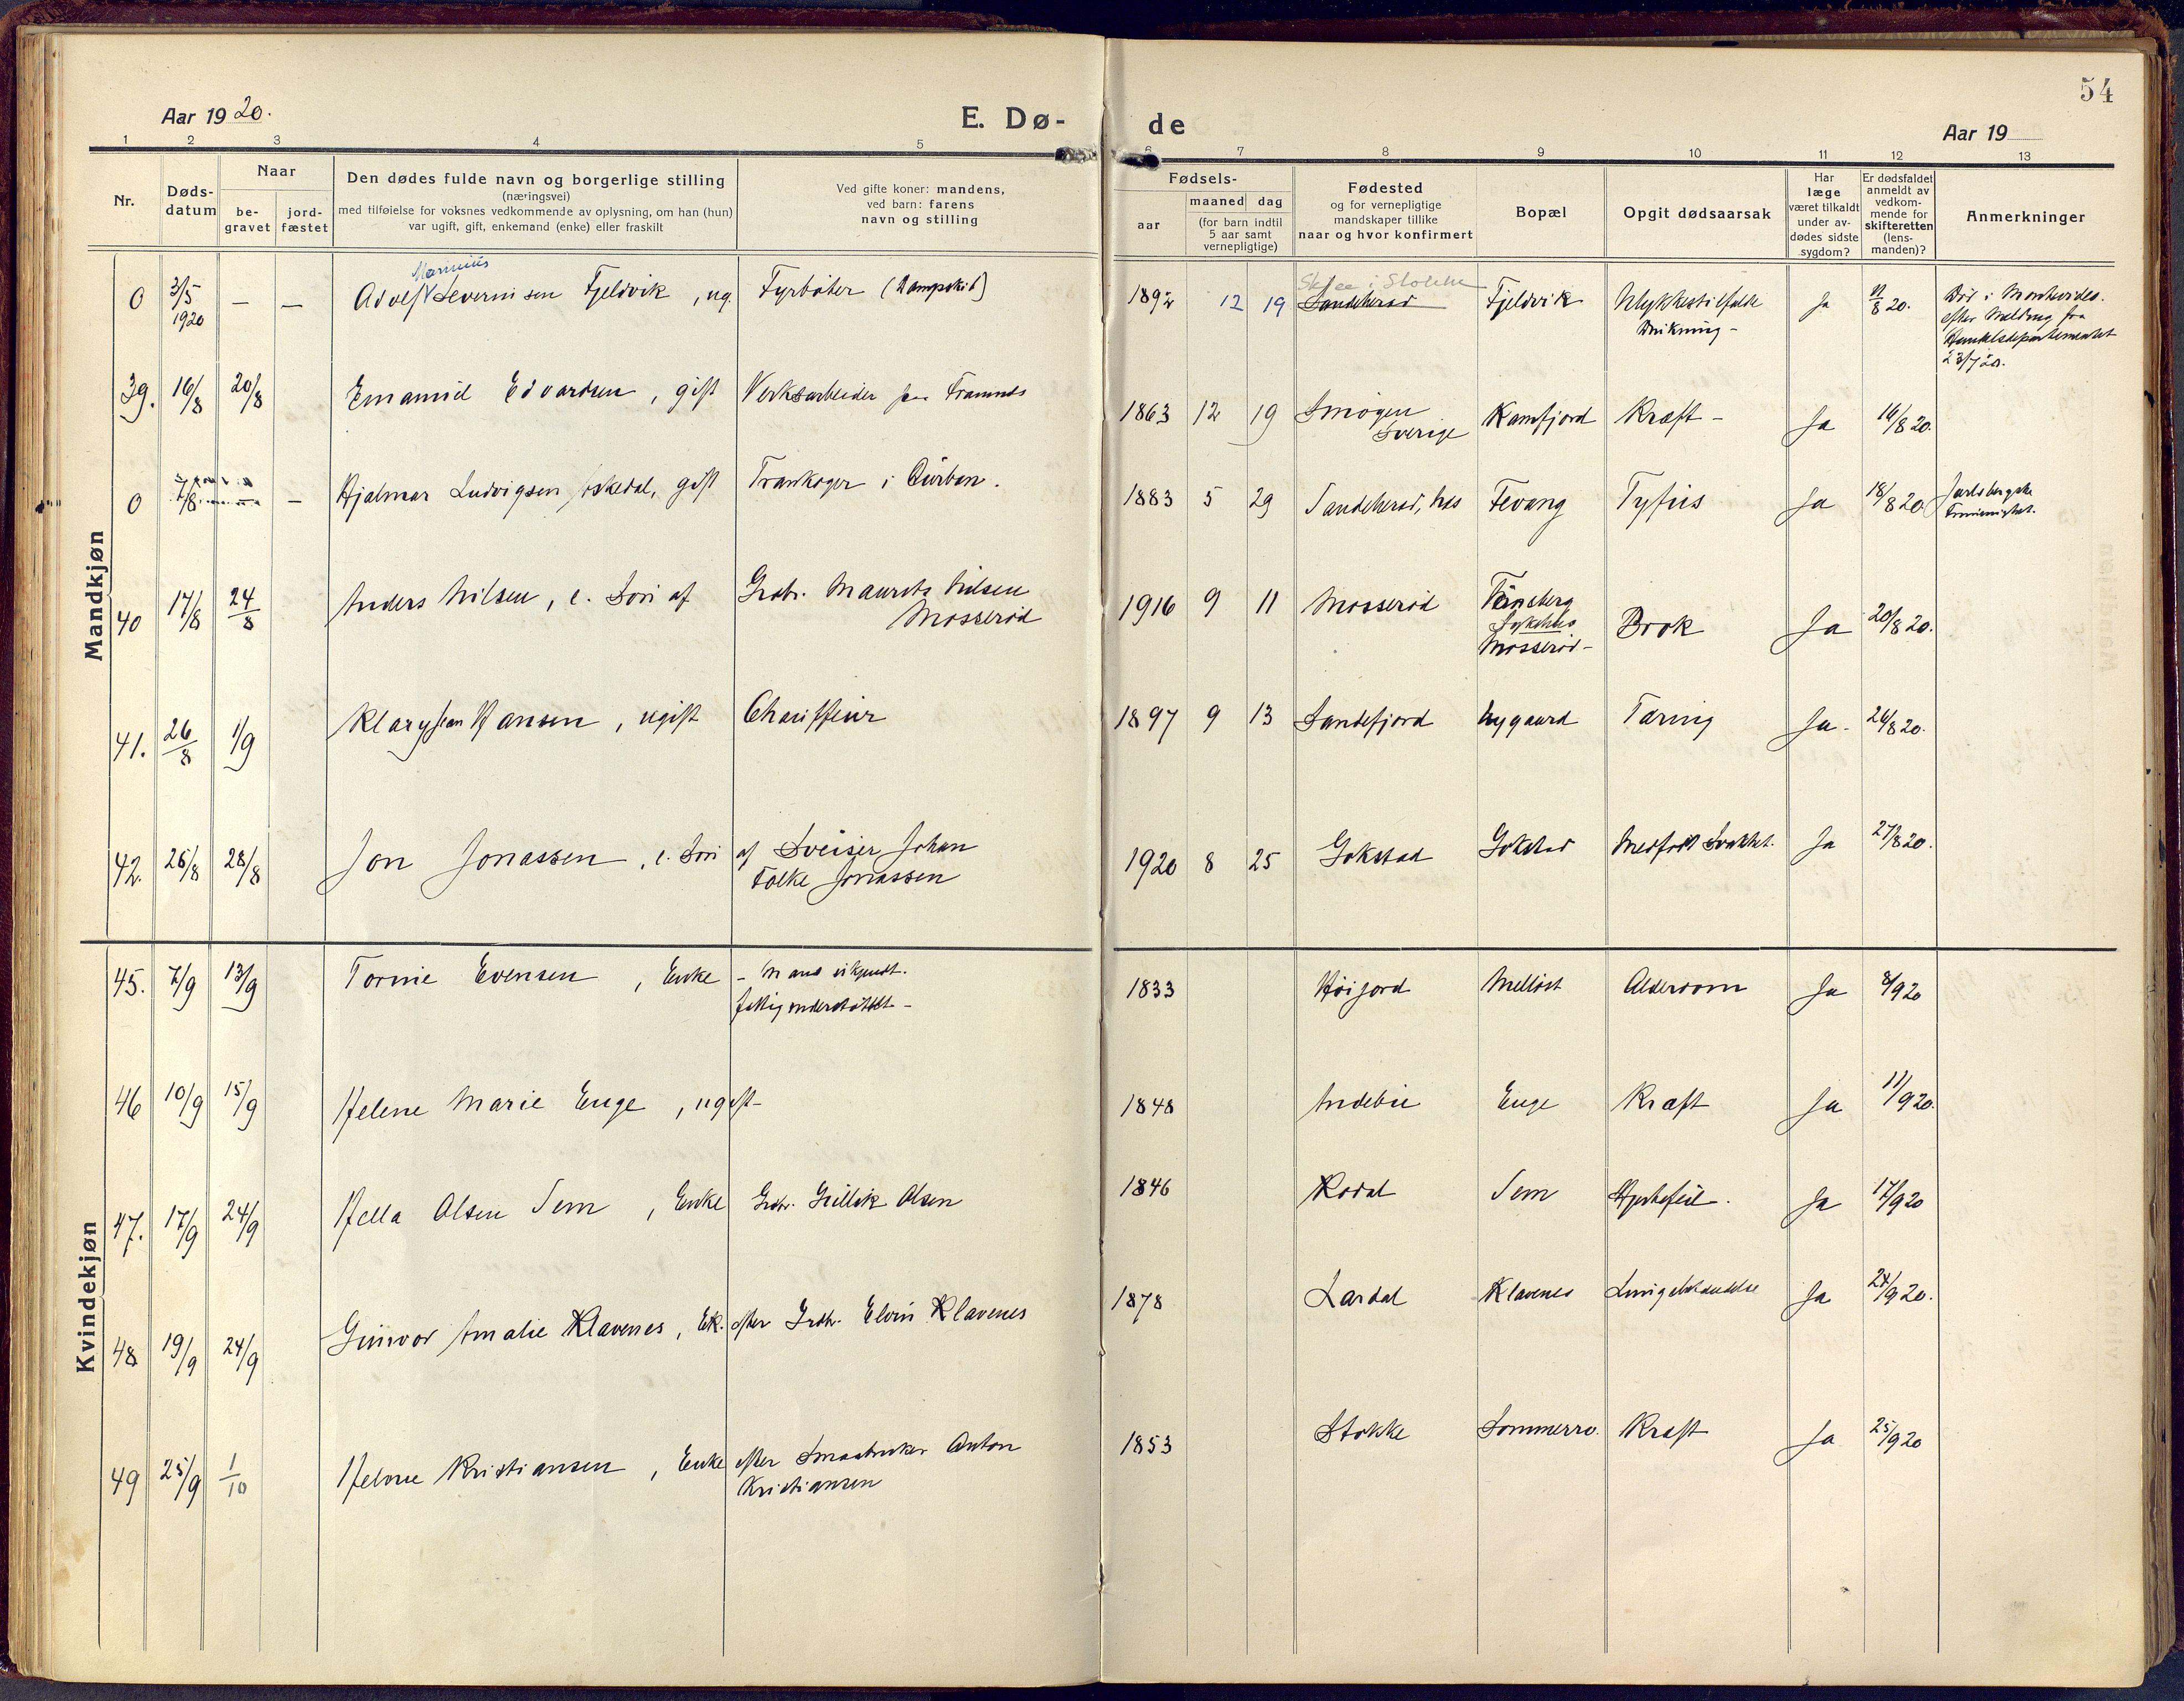 54
Aar 1920.
E. Dø-
de
Aar 19
1 2 3 4 5 6 7 8 9 10 11 12 13
Nr.
Døds-
datum
Naar
be-
gravet
jord-
fæstet
Den dødes fulde navn og borgerlige stilling
(næringsvei)
med tilføielse for voksnes vedkommende av oplysning, om han (hun)
var ugift, gift, enkemand (enke) eller fraskilt
Ved gifte koner: mandens,
ved barn: farens
navn og stilling
Fødsels-
aar
maaned dag
(for barn indtil
5 aar samt
vernepligtige)
Fødested
og for vernepligtige
mandskaper tillike
naar og hvor konfirmert
Bopæl
Opgit dødsaarsak
Har
læge
været tilkaldt
under av-
dødes sidste
sygdom?
Er dødsfaldet
anmeldt av
vedkom-
mende for
skifteretten
(lens-
manden)?
Anmerkninger
Mandkjøn
Marinius
Skjee i Stokke
0 3/5 1920 — — Adolf Severinsen Fjeldvik, ug. Fyrbøter (Dampskib) 1892 12 19 Sandeherad Fjeldvik Ulykkestilfælde Ja 11/8 20. Død i Montevideo.
Drukning - efter Melding fra
Handelsdepartementet
23/7 20.
39. 16/8 20/8 Emanuel Edvardsen, gift Verksarbeider paa Framnæs 1863 12 19 Smögen Kamfjord Kræft - Ja 16/8 20.
Sverige
0 7/8 — Hjalmar Ludvigsen Askedal, gift Trankoger i Durban. 1883 5 29 Sandeherad, hos Fevang Tyfus Ja 18/8 20 Jarlsbergske
40 17/8 24/8 Anders Nilsen, e. Søn af Grdbr. Maurits Nilsen 1916 9 11 Mosserød Tønsberg
Mosserød Sykehus
Mosserød - Brok Ja 20/8 20.
41. 26/8 1/9 Klary Hansen, ugift Chauffeur 1897 9 13 Sandefjord Nygaard Tæring Ja. 26/8 20.
42. 26/8 28/8 Jon Jonassen, e. Søn af Sveiser Johan 1920 8 25 Gokstad Gokstad Medfødt Svakhet. Ja 27/8 20.
Folke Jonassen
Kvindekjøn
45. 7/9 13/9 Tomine Evensen, Enke - Mand ukjendt. 1833 Høijord Melløst Alderdom Ja 8/9 20
fattigunderstøttet -
46 10/9 15/9 Helene Marie Enge, ugift - 1848 Andebu Enge Kræft Ja 11/9 20.
47. 17/9 24/9 Hella Olsen Sem, Enke Grdbr. Gullik Olsen 1846 Kodal Sem Hjertefeil. Ja 17/9 20
48 19/9 24/9 Gunvor Amalie Klavenes, Ek. efter Grdbr. Elvin Klavenes 1878 Lardal Klavenes Lungebetændelse Ja 21/9 20.
49 25/9 1/10 Helene Kristiansen, Enke efter Smaabruker Anton 1853 Stokke Sommerro. Kræft Ja 25/9 20
Kristiansen